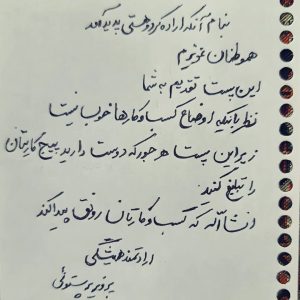 بنام آنکه اراده کرد و هستی پدید آمد
هموطنان عزیزم
این پست تقدیم به شما
نظر باینکه اوضاع کسب و کارها خوب نیست
زیر این پست هر جور که دوست دارید پیج کارتان
را تبلیغ کنید.
انشاالله که کسب و کارتان رونق پیدا کند
ارادتمند همیشگی
پرویز پرستوئی